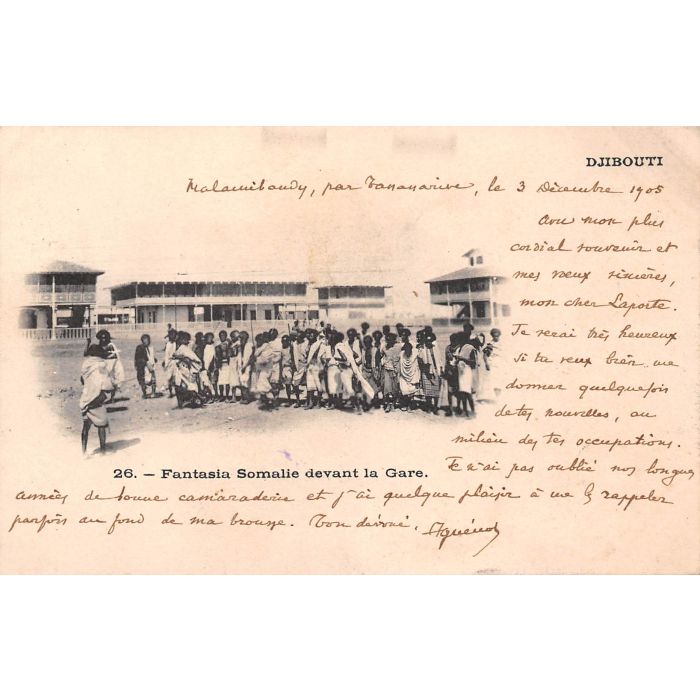 DJIBOUTI
Malamibandy, par Tananarive, le 3 Décembre 1905
Avec mon plus
cordial souvenir et
mes vœux sincères,
mon cher Laporte.
Je serai très heureux
si tu veux bien me
donner quelquefois
de tes nouvelles, au
milieu des tes occupations.
Je n'ai pas oublié nos longues
26. — Fantasia Somalie devant la Gare.
années de bonne camaraderie et j'ai quelque plaisir à me les rappeler
parfois au fond de ma brousse. Ton dévoué,